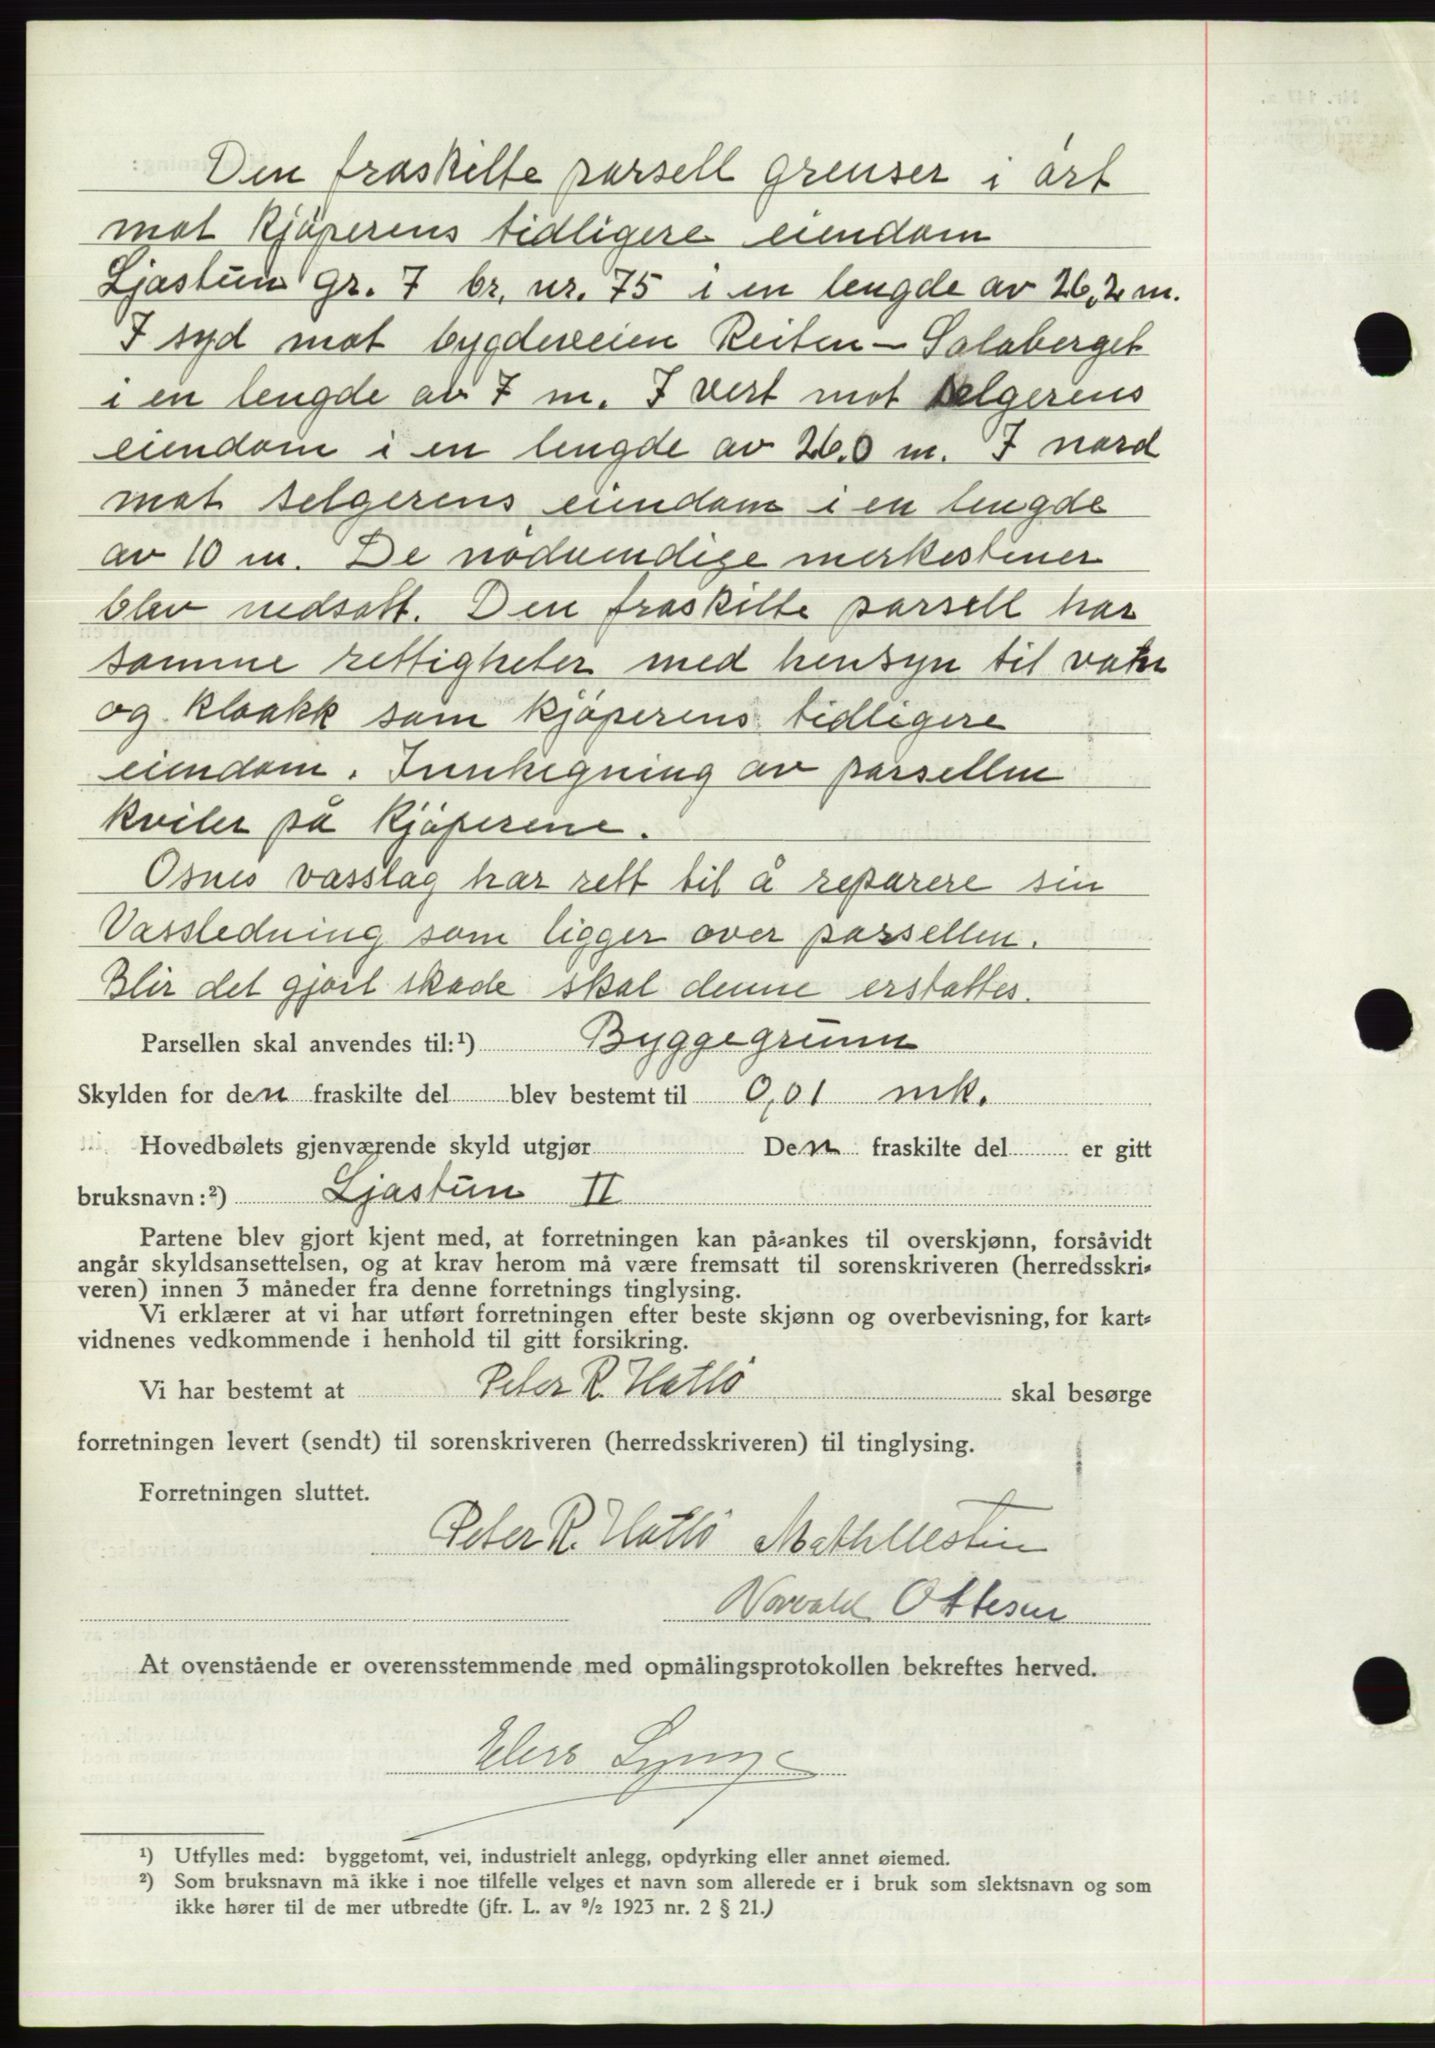 Den fraskilte parsell grenser i øst
mot kjøperens tidligere eiendom
Ljåstun gr. 7 br. nr. 75 i en lengde av 26,2 m.
I syd mot bygdeveien Reiten – Salaberget
i en lengde av 7 m. I vest mot selgerens
eiendom i en lengde av 26.0 m. I nord
mot selgerens eiendom i en lengde
av 10 m. De nødvendige merkestener
blev nedsatt. Den fraskilte parsell har
samme rettigheter med hensyn til vatn
og kloakk som kjøperens tidligere
eiendom. Innhegning av parsellen
kviler på kjøperene.
Osnes vasslag har rett til å reparere sin
Vassledning som ligger over parsellen.
Blir det gjort skade skal denne erstattes.
Parsellen skal anvendes til:¹) Byggegrunn
Skylden for den fraskilte del blev bestemt til 0,01 mk.
Hovedbølets gjenværende skyld utgjør Den fraskilte del er gitt
bruksnavn:²) Ljåstun II
Partene blev gjort kjent med, at forretningen kan på-ankes til overskjønn, forsåvidt
angår skyldsansettelsen, og at krav herom må være fremsatt til sorenskriveren (herredsskri-
veren) innen 3 måneder fra denne forretnings tinglysing.
Vi erklærer at vi har utført forretningen efter beste skjønn og overbevisning, for kart-
vidnenes vedkommende i henhold til gitt forsikring.
Vi har bestemt at Peter R. Hatlö skal besørge
forretningen levert (sendt) til sorenskriveren (herredsskriveren) til tinglysing.
Forretningen sluttet.
Peter R. Hatlö
Norvald Ottesen
At ovenstående er overensstemmende med opmålingsprotokollen bekreftes herved.
¹) Utfylles med: byggetomt, vei, industrielt anlegg, opdyrking eller annet øiemed.
²) Som bruksnavn må ikke i noe tilfelle velges et navn som allerede er i bruk som slektsnavn og som
ikke hører til de mer utbredte (jfr. L. av 9/2 1923 nr. 2 § 21.)